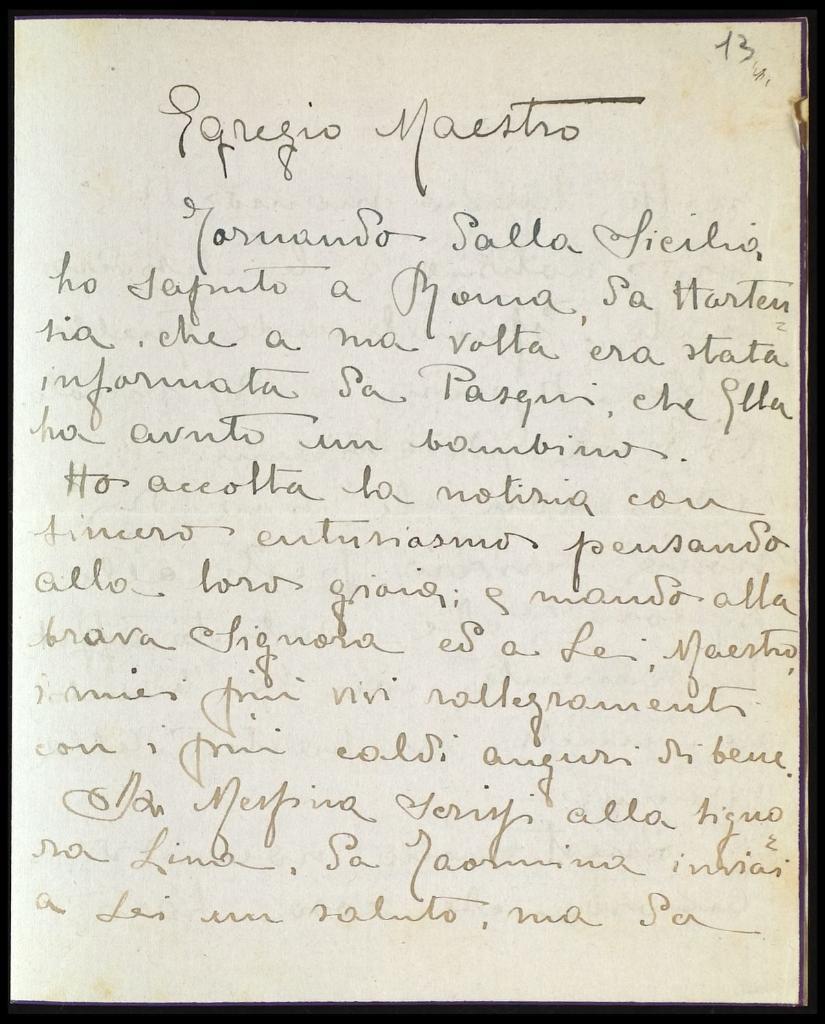 13
Egregio Maestro
Tornando dalla Sicilia
ho saputo a Roma, da Horten=
sia, che a sua volta era stata
informata da Pasqui, che Ella
ha avuto un bambino.
Ho accolta la notizia con
sincero entusiasmo pensando
alla loro gioia; e mando alla
brava Signora ed a Lei, Maestro,
i miei più vivi rallegramenti
con i più caldi auguri di bene.
Da Messina scrissi alla signo=
ra Lina, da Taormina inviai
a Lei un saluto, ma da